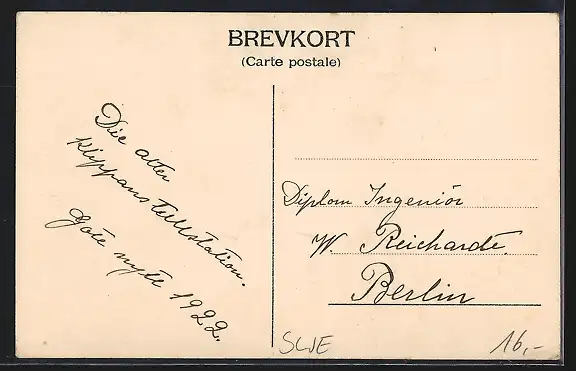 BREVKORT
(Carte postale)
Die alter
Klippans Tullstation.
Göte nyte 1922.
Diplom Ingeniör
W. Reichardt
Berlin
SWE
16,-